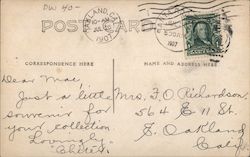 DW 40-
OAKLAND, CAL.
1907
POSTCARD
1907
CORRESPONDENCE HERE
NAME AND ADDRESS HERE
Dear Mae
Just a little
souvenir for
your collection
Lovingly
Mrs. F. O. Richardson,
564 E 11 St.
E. Oakland
Calif.